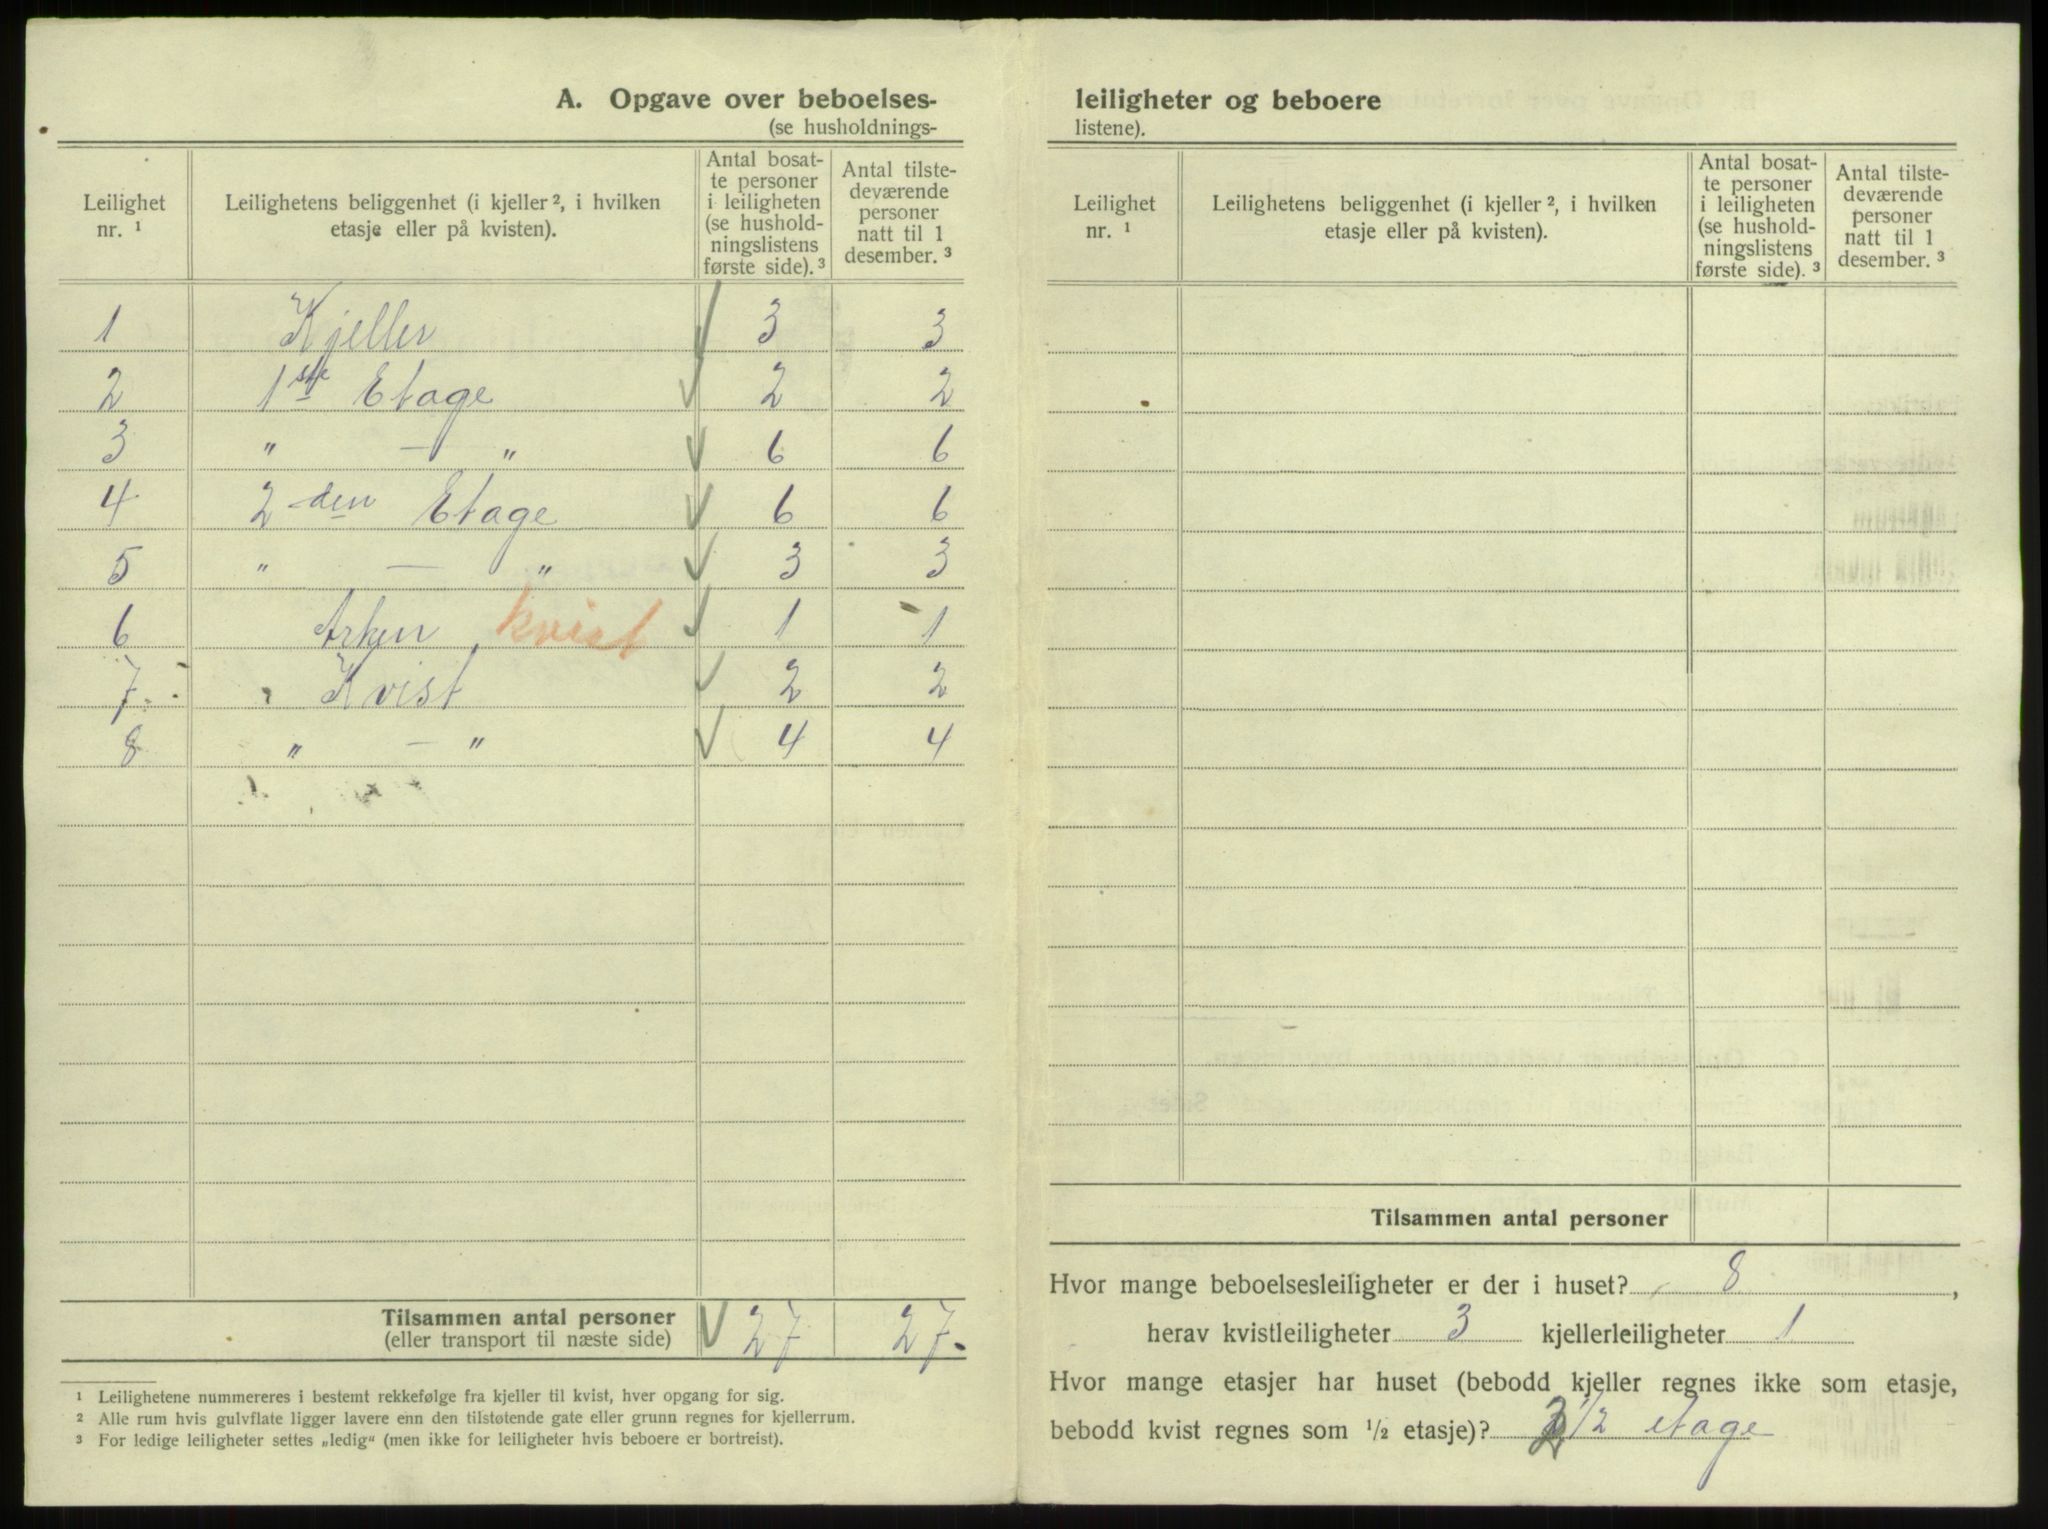 A. Opgave over beboelses-
(se husholdnings-
Leilighet nr. ¹
Leilighetens beliggenhet (i kjeller ², i hvilken etasje eller på kvisten).
Antal bosat-
te personer
i leiligheten
(se hushold-
ningslistens
første side). ³
Antal tilste-
deværende
personer
natt til 1
desember. ³
1 Kjeller 3 3
2 1ste Etage 2 2
3 " — " 6 6
4 2den Etage 6 6
5 " — " 3 3
6 Arken kvist 1 1
7. Kvist 2 2
8 " — " 4 4
Tilsammen antal personer 27 27.
(eller transport til næste side)
¹ Leilighetene nummereres i bestemt rekkefølge fra kjeller til kvist, hver opgang for sig.
² Alle rum hvis gulvflate ligger lavere enn den tilstøtende gate eller grunn regnes for kjellerrum.
³ For ledige leiligheter settes „ledig“ (men ikke for leiligheter hvis beboere er bortreist).
leiligheter og beboere
listene).
Leilighet nr. ¹
Leilighetens beliggenhet (i kjeller ², i hvilken etasje eller på kvisten).
Antal bosat-
te personer
i leiligheten
(se hushold-
ningslistens
første side). ³
Antal tilste-
deværende
personer
natt til 1
desember. ³
Tilsammen antal personer
Hvor mange beboelsesleiligheter er der i huset? 8,
herav kvistleiligheter 3 kjellerleiligheter 1
Hvor mange etasjer har huset (bebodd kjeller regnes ikke som etasje,
bebodd kvist regnes som ½ etasje)? 1/2 etage